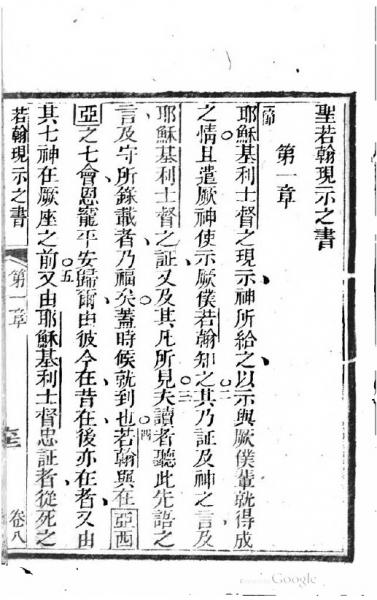 聖若翰現示之書
第一章
一節耶穌基利士督之現示神所給之以示與厥僕輩就得成
之情且遣厥神使示厥僕若翰知之二其乃証及神之言及
耶穌基利士督之証又及其凡所見三夫讀者聽此先語之
言及守所錄載者乃福矣蓋時候就到也四若翰與在亞西
亞之七會恩寵平安歸爾由彼今在昔在後亦在者又由
其七神在厥座之前五又由耶穌基利士督忠証者從死之
若翰現示之書 第一章 卷八
Google